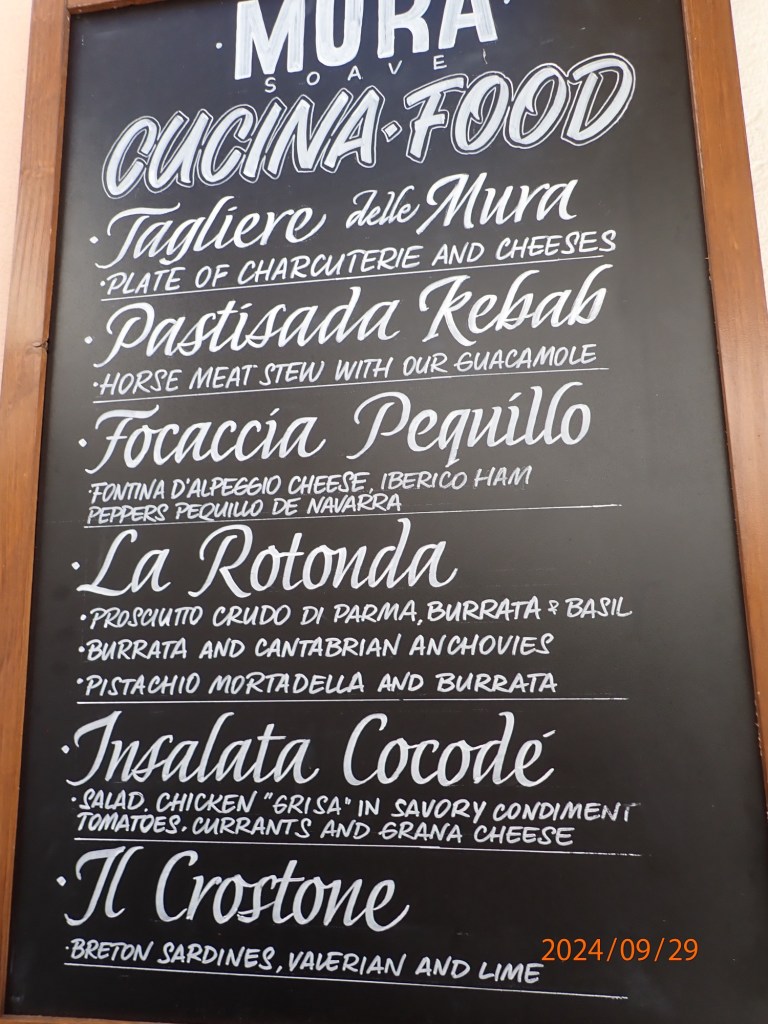 · MURA ·
SOAVE
CUCINA · FOOD
· Tagliere delle Mura
· PLATE OF CHARCUTERIE AND CHEESES
· Pastisada Kebab
· HORSE MEAT STEW WITH OUR GUACAMOLE
· Focaccia Pequillo
· FONTINA D'ALPEGGIO CHEESE, IBERICO HAM
PEPPERS PEQUILLO DE NAVARRA
· La Rotonda
· PROSCIUTTO CRUDO DI PARMA, BURRATA & BASIL
· BURRATA AND CANTABRIAN ANCHOVIES
· PISTACHIO MORTADELLA AND BURRATA
· Insalata Cocodé
· SALAD. CHICKEN "GRISA" IN SAVORY CONDIMENT
TOMATOES. CURRANTS AND GRANA CHEESE
· Il Crostone
· BRETON SARDINES, VALERIAN AND LIME
2024/09/29